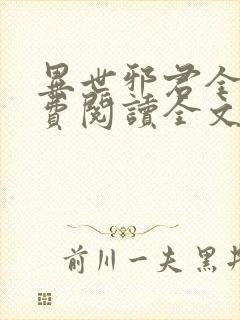 異世邪君全
費閱讀全文
前川一夫 黑